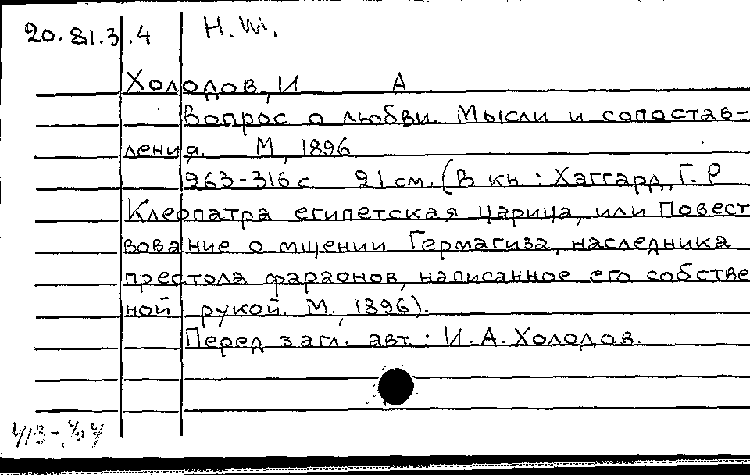 20.81.3.4 Н. Ш.
Холодов, И А
Вопрос о любви. Мысли и сопостав-
ления. М, 1896
263-316 с 21 см. (В кн.: Хаггард, Г. Р
Клеопатра египетская царица, или Повест
вование о мщении Гермагиза, наследника
престола фараонов, написанное его собстве
ной рукой. М., 1896).
Перед загл. авт.: И. А. Холодов.